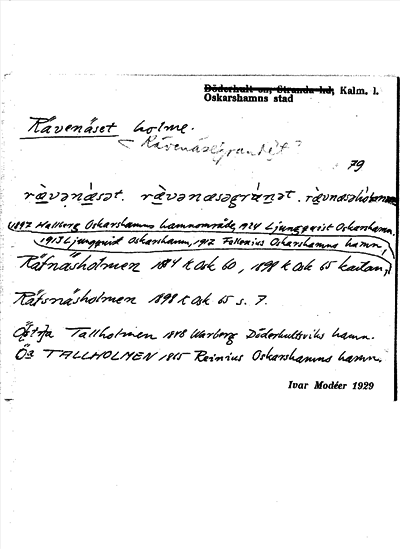 Döderhult sn, Stranda hd, Kalm. l.
Oskarshamns stad
Rävenäset holme.
< Rävenäsegrundet?
79
rävənäsət. rävənæsəgrun̄ət. rävnæsəhòləmən
1897 Hallberg Oskarshamns hamnområde, 1924 Ljungqvist Oskarshamn.
1913 Ljungqvist Oskarshamn, 1917 Follenius Oskarshamns hamn,
Räfnäsholmen 1884 K Osk 60, 1898 K Osk 65 kartan,
Räfsnäsholmen 1898 K Osk 65 s. 7.
Östra Tallholmen 1848 Warberg Döderhultsviks hamn.
Ös TALLHOLMEN 1865 Reinius Oskarshamns hamn.
Ivar Modéer 1929